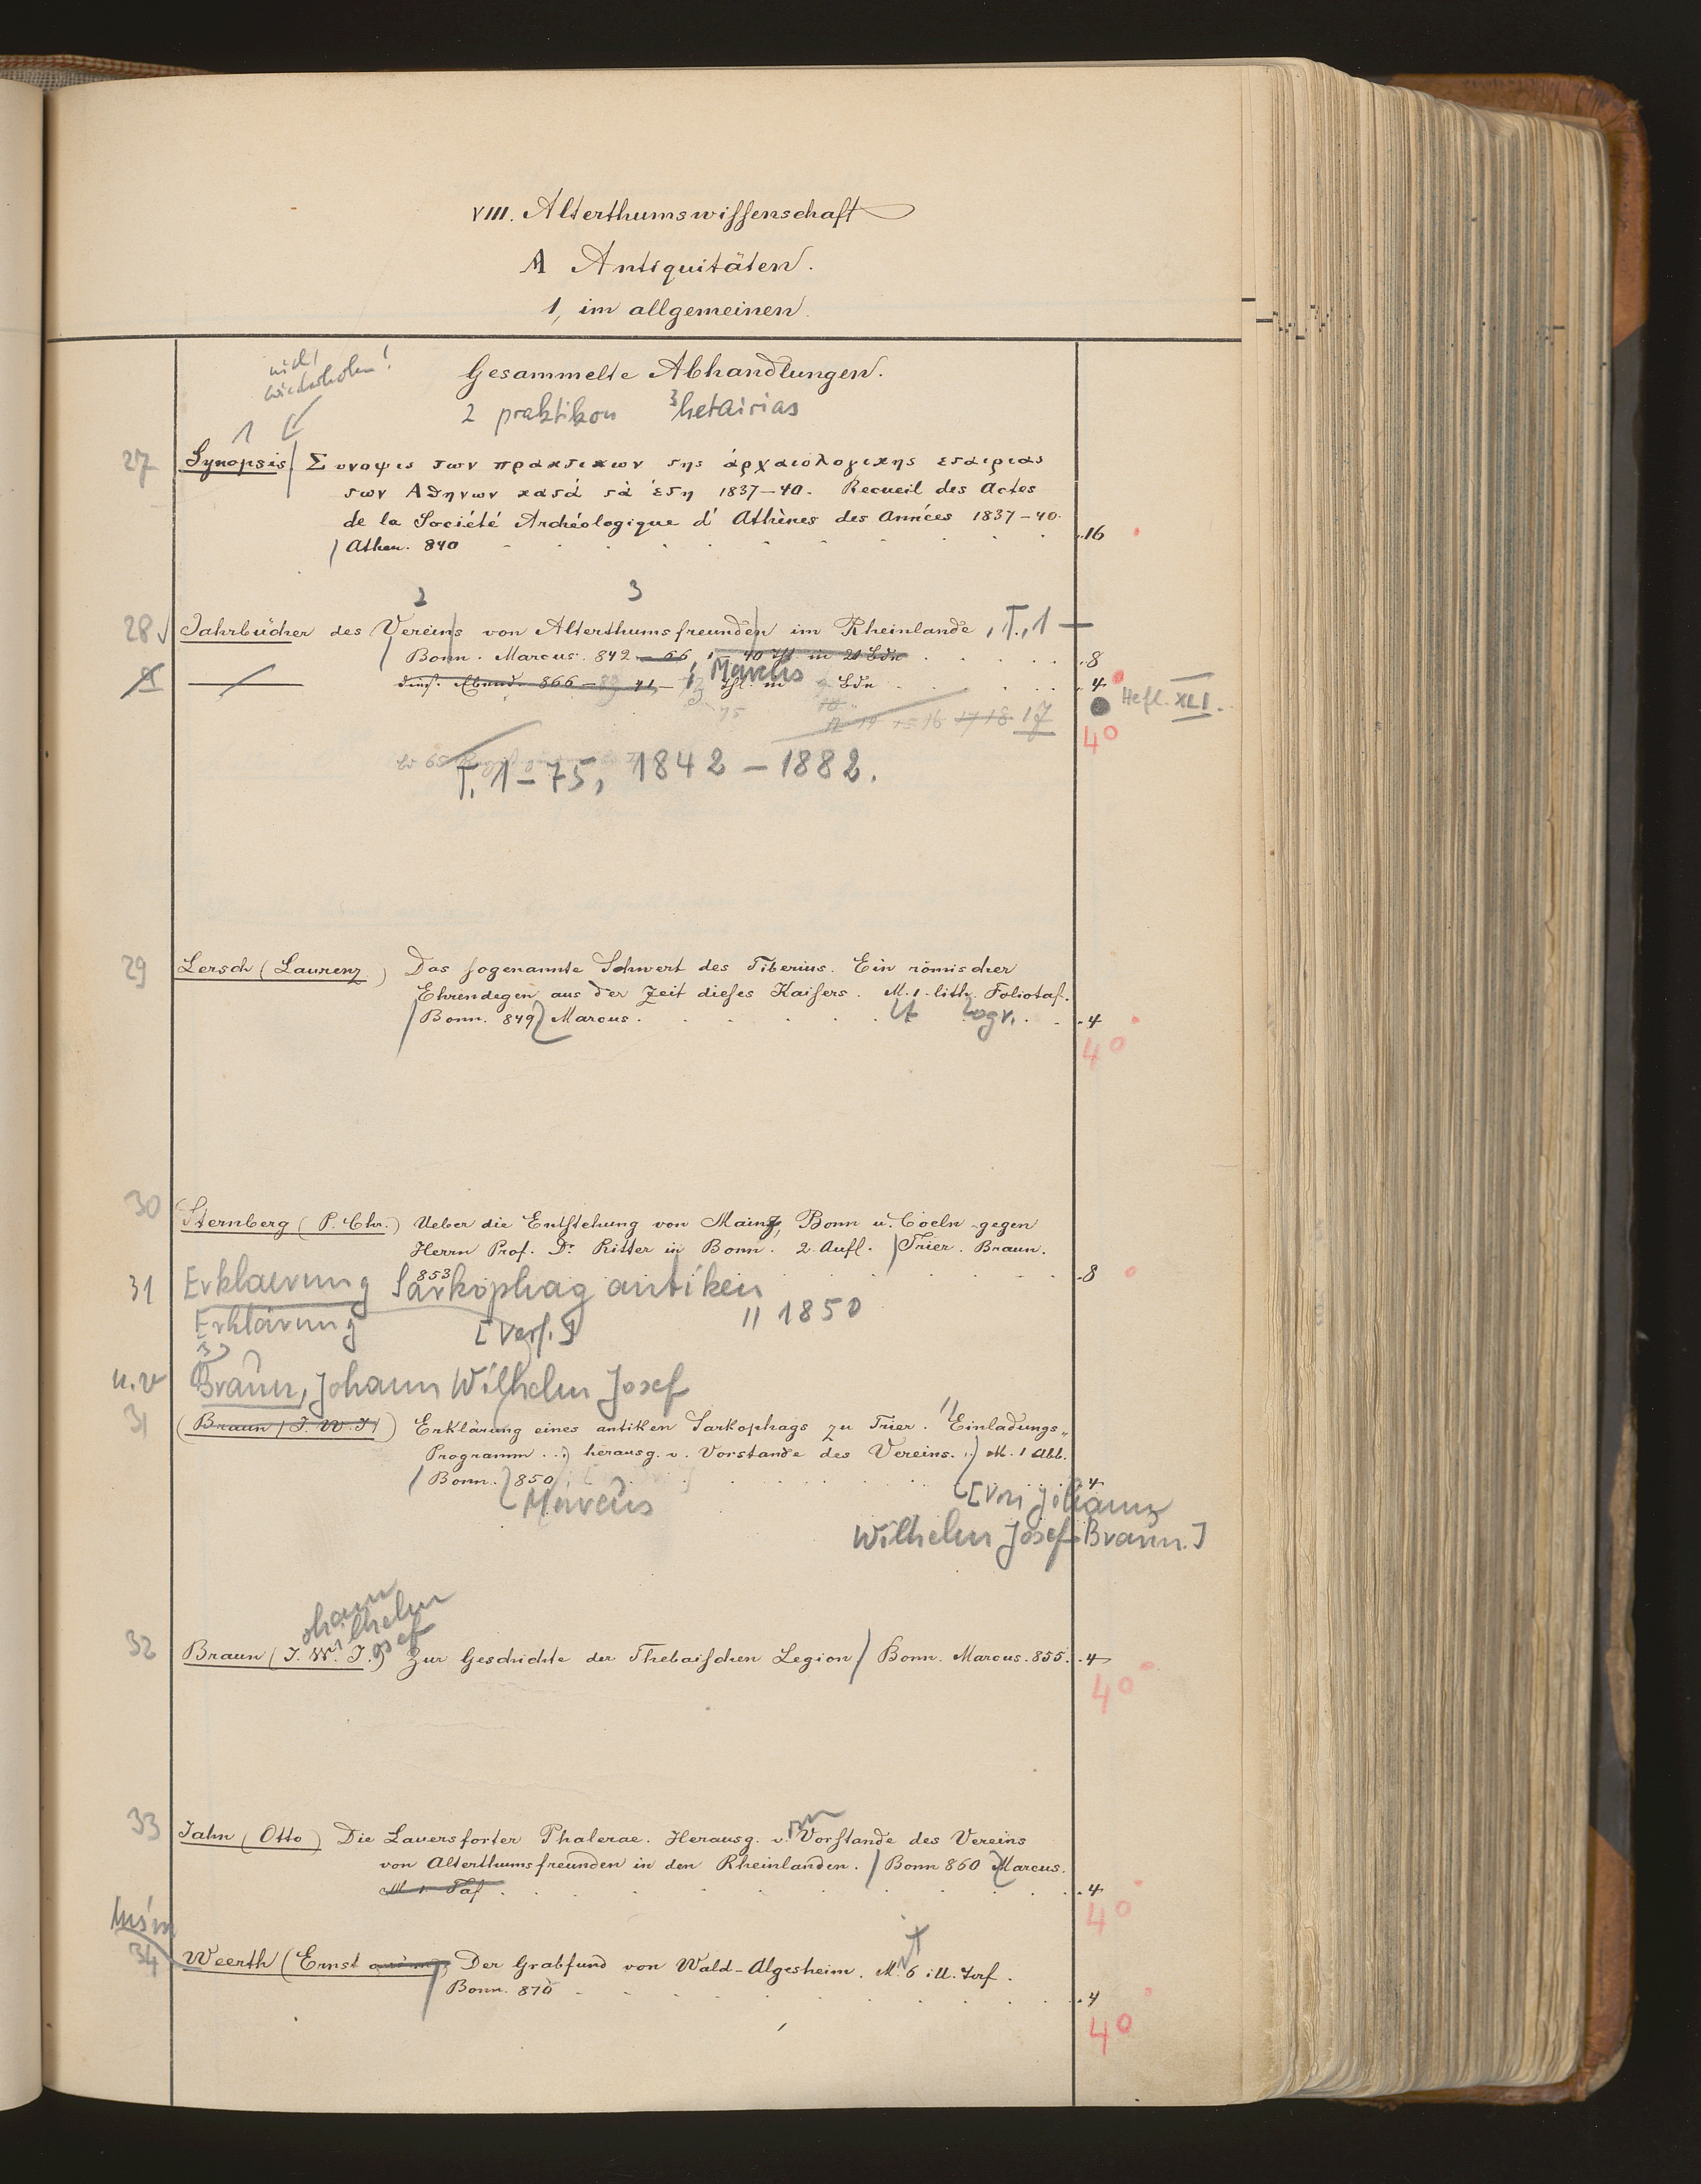 VIII. Alterthumswissenschaft
A Antiquitäten.
1, im allgemeinen.
nicht wiederholen!
Gesammelte Abhandlungen.
2 praktikon 3 hetairias
1
27 Synopsis Συνοψις των πρακτικων της ἀρχαιολογικης εταιριας
των Αθηνων κατά τὰ ἐτη 1837–40. Recueil des Actes
de la Société Archéologique d'Athènes des Années 1837–40.
Athen. 840 16
2 3
28 Jahrbücher des Vereins von Alterthumsfreunden im Rheinlande, T., 1 –
Bonn. Marcus. 842–66, 1–40 Hft in 21 Bdn 8
Marcus
dies. Ebend. 866– 41– Hft. in Bdn 4
Heft. XLI.
75 17 18 17
40
T. 1–75, 1842–1882.
29 Lersch (Laurenz) Das sogenannte Schwert des Tiberius. Ein römischer
Ehrendegen aus der Zeit dieses Kaisers. M. 1 lith. Foliotaf.
Bonn. 849 Marcus. ogr. 4
40
30 Sternberg (P. Chr.) Ueber die Entstehung von Mainz, Bonn u. Coeln gegen
Herrn Prof. Dr Ritter in Bonn. 2. Aufl. Trier. Braun.
853 8
31 Erklaerung Sarkophag antiken
Erklärung [Verf.] " 1850
u.v Braun, Johann Wilhelm Josef
31 (Braun (J. W. J.)) Erklärung eines antiken Sarkophags zu Trier. Einladungs-
Programm ... herausg. v. Vorstande des Vereins. M. 1 Abb.
Bonn. 850 4
Marcus [von Johann
Wilhelm Josef Braun.]
ohann
ilhelm
osef
32 Braun (J. W. J.) Zur Geschichte der Thebaischen Legion Bonn. Marcus. 855. 4
40
33 Jahn (Otto) Die Lauersforter Phalerae. Herausg. v. Vorstande des Vereins
von Alterthumsfreunden in den Rheinlanden. Bonn 860 Marcus.
M 1 Taf 4
40
34 Weerth (Ernst Der Grabfund von Wald-Algesheim. M. 6 ill.
Bonn. 870 4
40